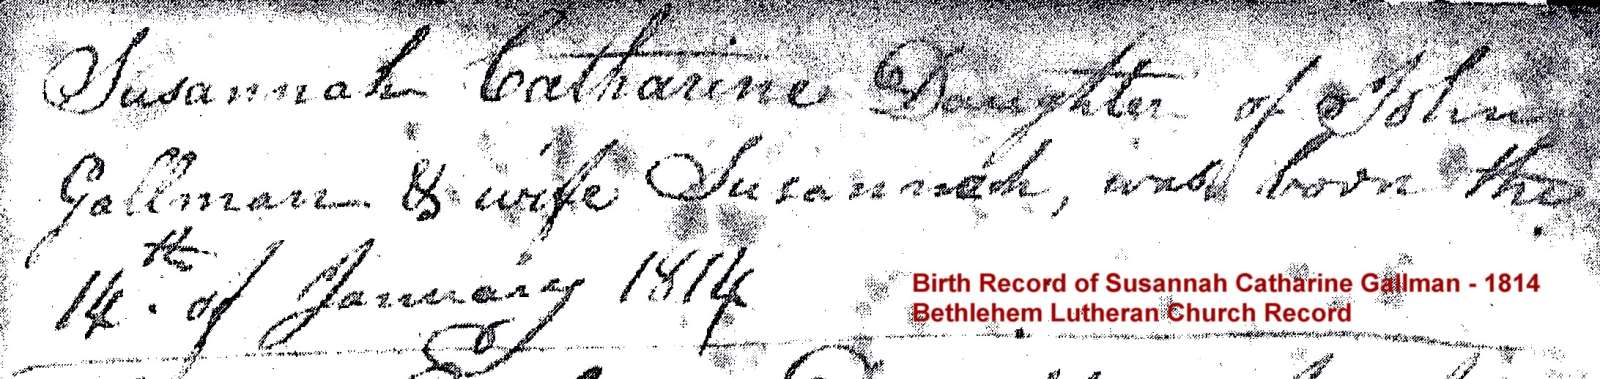 Susannah Catharine Daughter of John
Gallman & wife Susannah, was born the
14th. of January 1814
Birth Record of Susannah Catharine Gallman - 1814
Bethlehem Lutheran Church Record